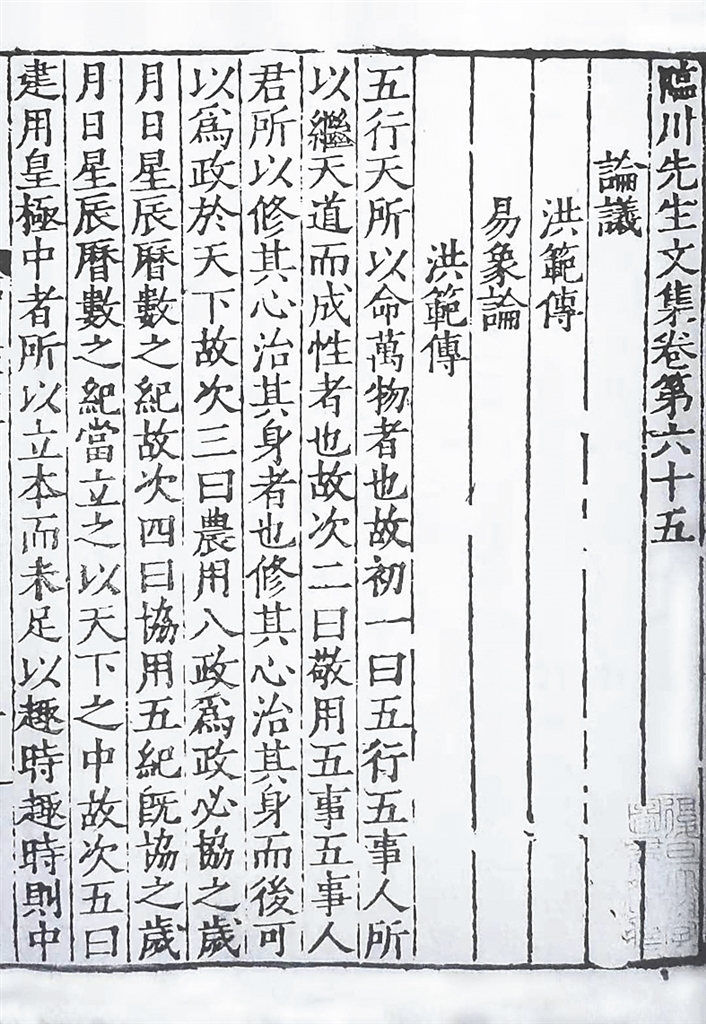 臨川先生文集卷第六十五
論議
洪範傳
易象論
洪範傳
五行天所以命萬物者也故初一曰五行五事人所
以繼天道而成性者也故次二曰敬用五事五事人
君所以修其心治其身者也修其心治其身而後可
以爲政於天下故次三曰農用八政爲政必協之歲
月日星辰曆數之紀故次四曰協用五紀旣協之歲
月日星辰曆數之紀當立之以天下之中故次五曰
建用皇極中者所以立本而未足以趣時趣時則中